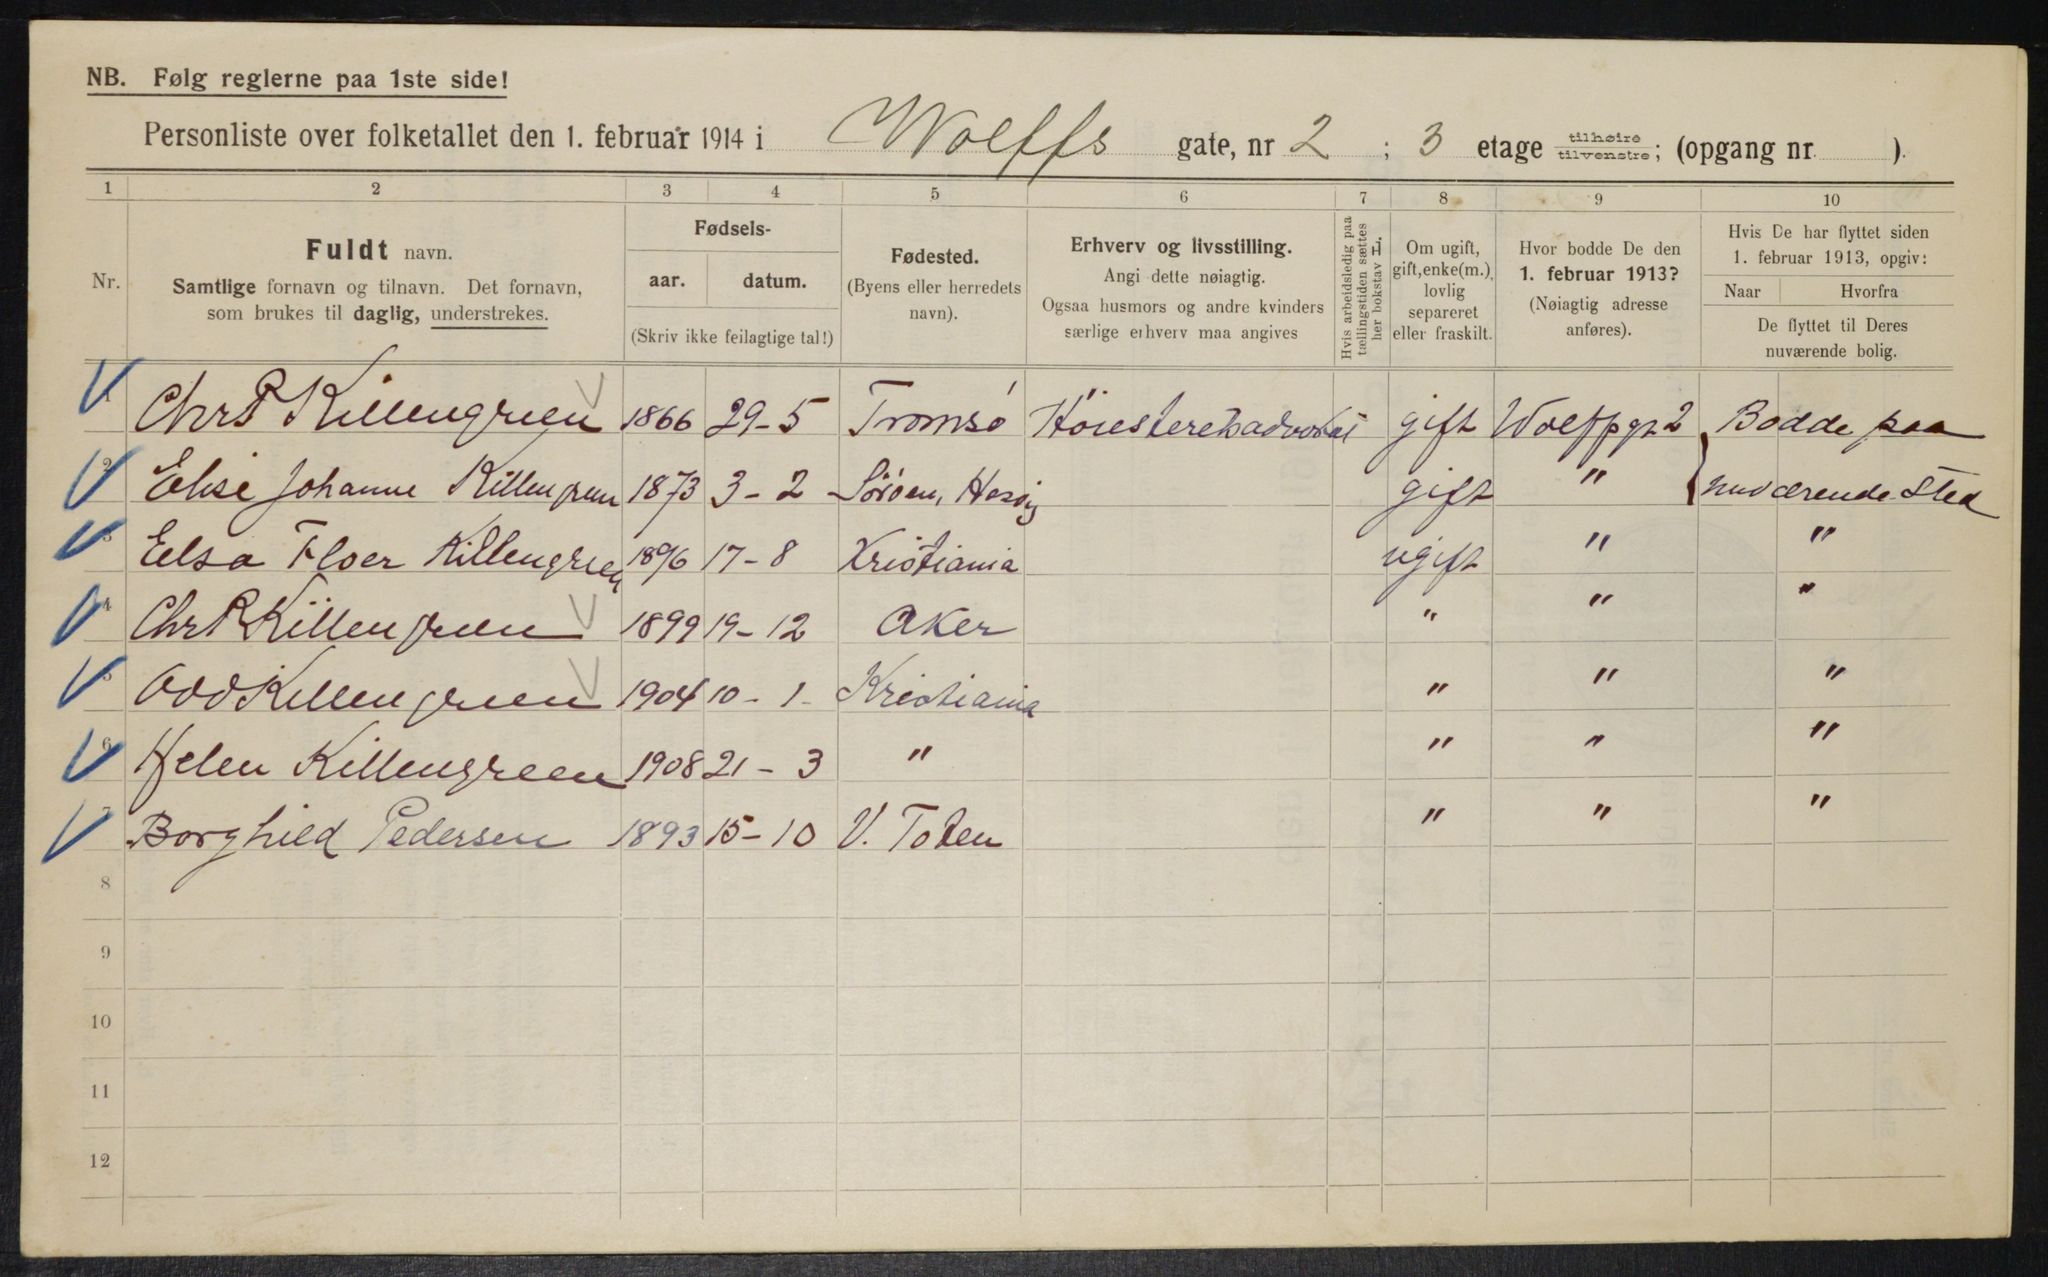 NB. Følg reglerne paa 1ste side!
Personliste over folketallet den 1. februar 1914 i Wolffs gate, nr 2 ; 3 etage tilhøire/tilvenstre; (opgang nr. ).
1 2 3 4 5 6 7 8 9 10
Nr.
Fuldt navn.
Samtlige fornavn og tilnavn. Det fornavn,
som brukes til daglig, understrekes.
Fødsels-
aar. datum.
(Skriv ikke feilagtige tal!)
Fødested.
(Byens eller herredets
navn).
Erhverv og livsstilling.
Angi dette nøiagtig.
Ogsaa husmors og andre kvinders
særlige erhverv maa angives
Hvis arbeidsledig paa
tællingstiden sættes
her bokstav L.
Om ugift,
gift, enke(m.),
lovlig
separeret
eller fraskilt.
Hvor bodde De den
1. februar 1913?
(Nøiagtig adresse
anføres).
Hvis De har flyttet siden
1. februar 1913, opgiv:
Naar Hvorfra
De flyttet til Deres
nuværende bolig.
1 Chr P Killengreen 1866 29-5 Tromsø Høiesteretsadvokat gift Wolffsgt 2 Bodde paa
2 Elise Johanne Killengreen 1873 3-2 Sørøen, gift " nuværende Sted
3 Elsa Floer Killengreen 1896 17-8 Kristiania ugift " "
4 Chr R Killengreen 1899 19-12 Aker " " "
5 Odd Killengreen 1904 10-1- Kristiania " " "
6 Helen Killengreen 1908 21-3 " " " "
7 Borghild Pedersen 1893 15-10 V. Toten " " "
8
9
10
11
12